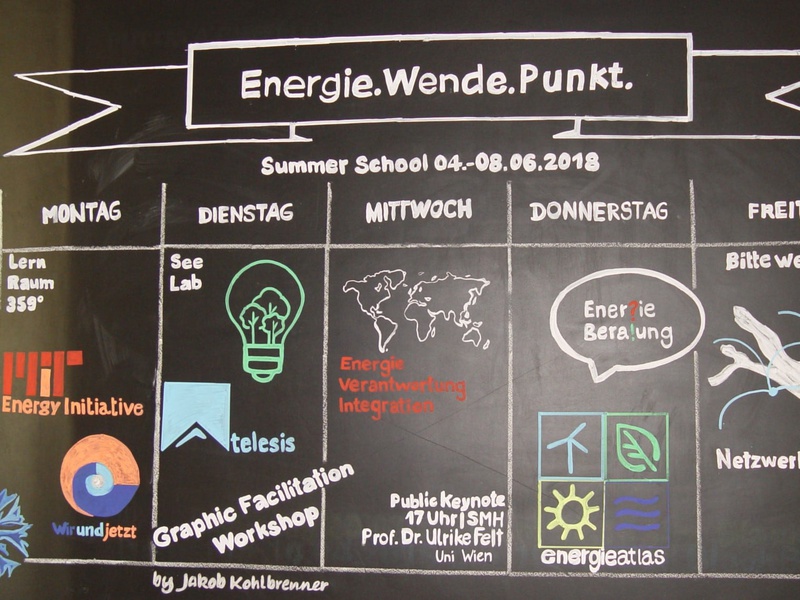 Energie.Wende.Punkt.
Summer School 04.-08.06.2018
MONTAG
Lern
Raum
359°
MIT
Energy Initiative
Wirundjetzt
DIENSTAG
See
Lab
telesis
Graphic Facilitation
Workshop
by Jakob Kohlbrenner
MITTWOCH
Energie
Verantwortung
Integration
Public Keynote
17 Uhr | SMH
Prof. Dr. Ulrike Felt
Uni Wien
DONNERSTAG
Ener?ie
Bera!ung
energieatlas
FREIT
Bitte we
Netzwerk